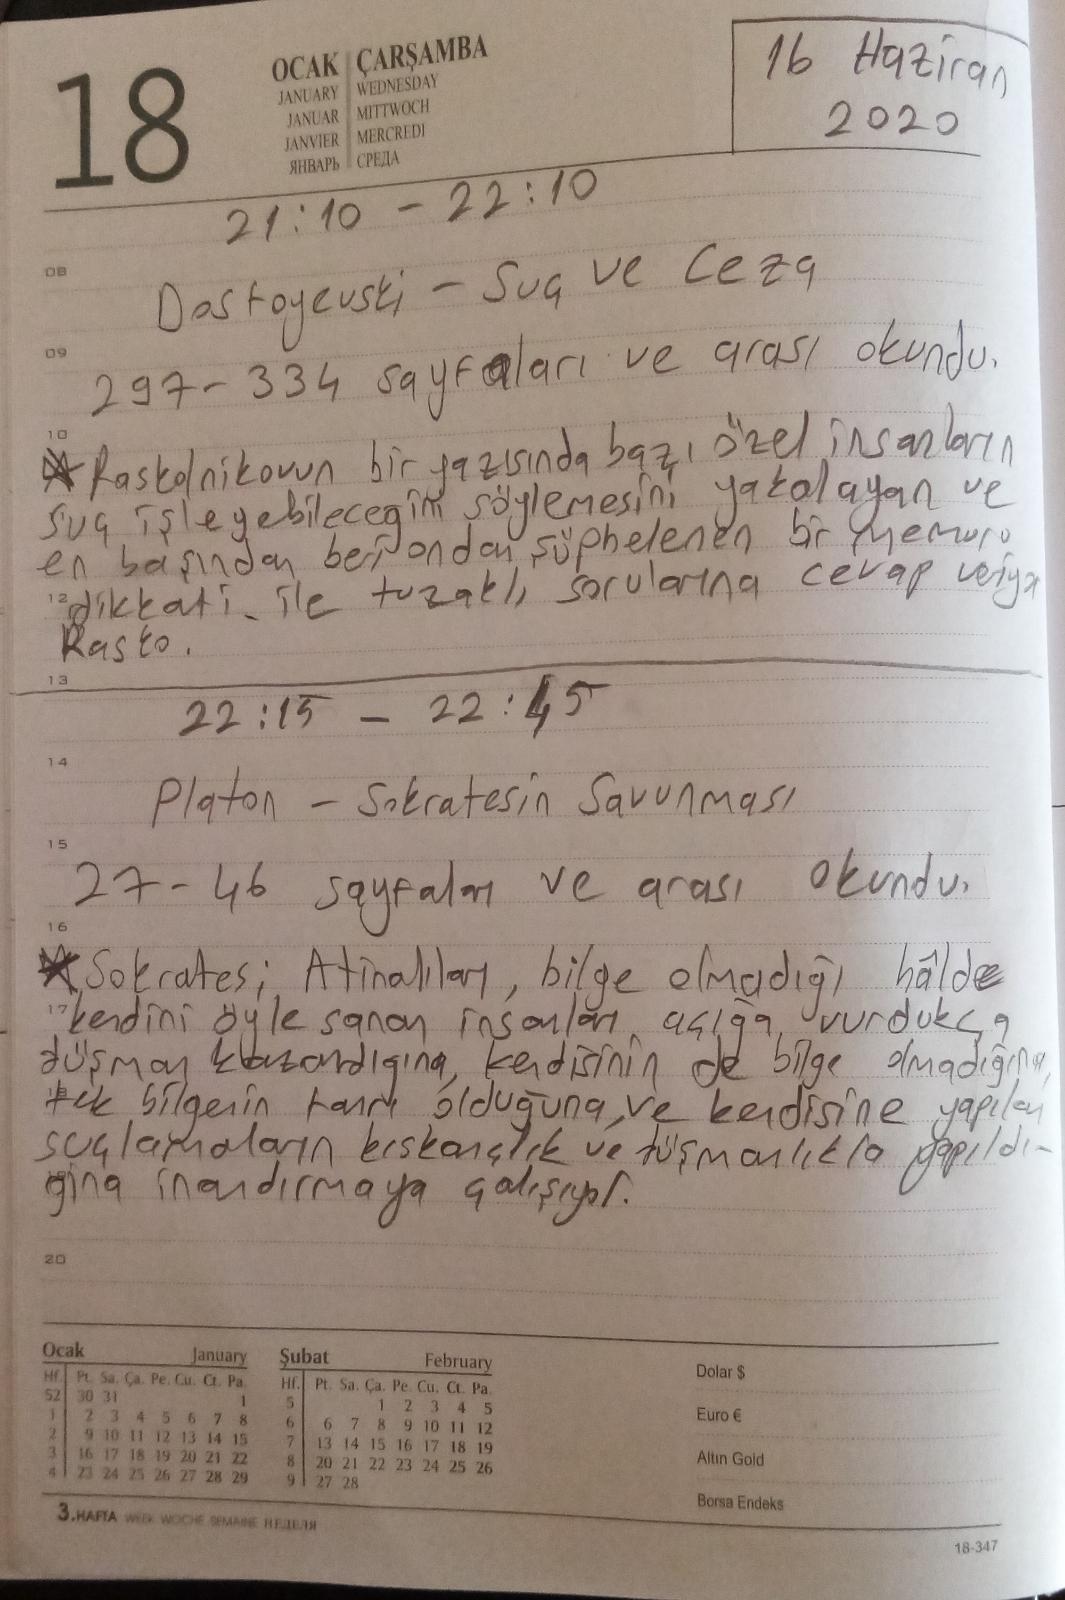 18
OCAK ÇARŞAMBA
JANUARY WEDNESDAY
JANUAR MITTWOCH
JANVIER MERCREDI
ЯНВАРЬ СРЕДА
16 Haziran
2020
21:10 - 22:10
08
Dostoyevski - Suç ve Ceza
09
297-334 sayfaları ve arası okundu.
10
Raskolnikovun bir yazısında bazı özel insanların
suç işleyebileceğini söylemesini yakalayan ve
en başından beri ondan şüphelenen bir memuru
12
dikkati ile tuzaklı sorularına cevap veriyo
Rasko.
13
22:15 - 22:45
14
Platon - Sokratesin Savunması
15
27-46 sayfaları ve arası okundu.
16
Sokrates; Atinalıları, bilge olmadığı hâlde
17
kendini öyle sanan insanları açığa vurdukça
düşman kazandığına, kendisinin de bilge olmadığına,
tek bilgenin tanrı olduğuna, ve kendisine yapılan
suçlamaların kıskançlık ve düşmanlıkla yapıldı-
ğına inandırmaya çalışıyor.
20
Ocak January
Hf. Pt. Sa. Ça. Pe. Cu. Ct. Pa.
52 30 31 1
1 2 3 4 5 6 7 8
2 9 10 11 12 13 14 15
3 16 17 18 19 20 21 22
4 23 24 25 26 27 28 29
Şubat February
Hf. Pt. Sa. Ça. Pe. Cu. Ct. Pa.
5 1 2 3 4 5
6 6 7 8 9 10 11 12
7 13 14 15 16 17 18 19
8 20 21 22 23 24 25 26
9 27 28
Dolar $
Euro €
Altın Gold
Borsa Endeks
3.HAFTA WEEK WOCHE SEMAINE НЕДЕЛЯ
18-347